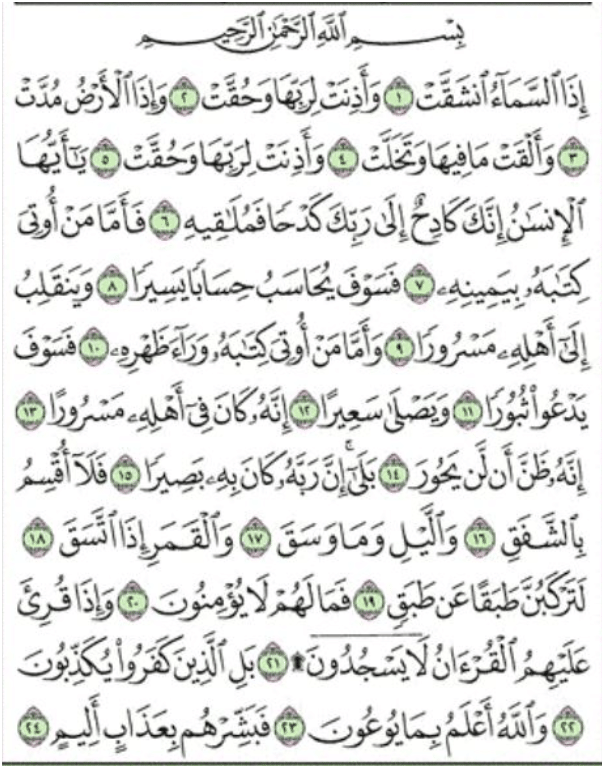 بِسْمِ ٱللَّهِ ٱلرَّحْمَٰنِ ٱلرَّحِيمِ
إِذَا ٱلسَّمَآءُ ٱنشَقَّتْ ١ وَأَذِنَتْ لِرَبِّهَا وَحُقَّتْ ٢ وَإِذَا ٱلْأَرْضُ مُدَّتْ
٣ وَأَلْقَتْ مَا فِيهَا وَتَخَلَّتْ ٤ وَأَذِنَتْ لِرَبِّهَا وَحُقَّتْ ٥ يَٰٓأَيُّهَا
ٱلْإِنسَٰنُ إِنَّكَ كَادِحٌ إِلَىٰ رَبِّكَ كَدْحًا فَمُلَٰقِيهِ ٦ فَأَمَّا مَنْ أُوتِىَ
كِتَٰبَهُۥ بِيَمِينِهِۦ ٧ فَسَوْفَ يُحَاسَبُ حِسَابًا يَسِيرًا ٨ وَيَنقَلِبُ
إِلَىٰٓ أَهْلِهِۦ مَسْرُورًا ٩ وَأَمَّا مَنْ أُوتِىَ كِتَٰبَهُۥ وَرَآءَ ظَهْرِهِۦ ١٠ فَسَوْفَ
يَدْعُوا۟ ثُبُورًا ١١ وَيَصْلَىٰ سَعِيرًا ١٢ إِنَّهُۥ كَانَ فِىٓ أَهْلِهِۦ مَسْرُورًا ١٣
إِنَّهُۥ ظَنَّ أَن لَّن يَحُورَ ١٤ بَلَىٰٓۚ إِنَّ رَبَّهُۥ كَانَ بِهِۦ بَصِيرًا ١٥ فَلَآ أُقْسِمُ
بِٱلشَّفَقِ ١٦ وَٱلَّيْلِ وَمَا وَسَقَ ١٧ وَٱلْقَمَرِ إِذَا ٱتَّسَقَ ١٨
لَتَرْكَبُنَّ طَبَقًا عَن طَبَقٍ ١٩ فَمَا لَهُمْ لَا يُؤْمِنُونَ ٢٠ وَإِذَا قُرِئَ
عَلَيْهِمُ ٱلْقُرْءَانُ لَا يَسْجُدُونَ ۩ ٢١ بَلِ ٱلَّذِينَ كَفَرُوا۟ يُكَذِّبُونَ
٢٢ وَٱللَّهُ أَعْلَمُ بِمَا يُوعُونَ ٢٣ فَبَشِّرْهُم بِعَذَابٍ أَلِيمٍ ٢٤